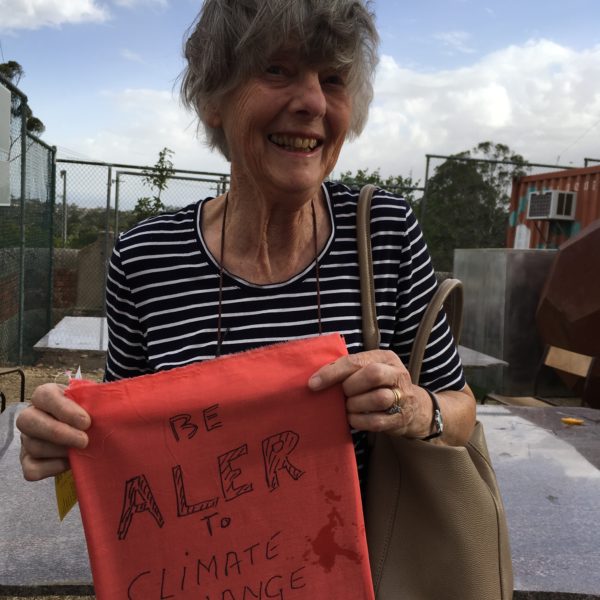 BE
ALER
TO
CLiMATE
HANGE